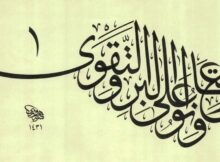 ١
تعاونوا على البر والتقوى
١٤٣١